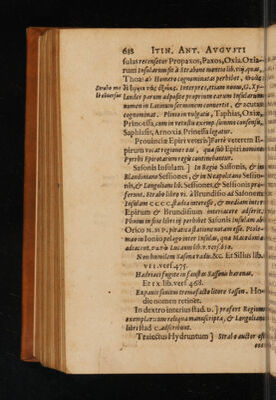 632 ITIN. ANT. AVGVSTI
sulas recensetur Propaxos, Paxos, Oxia. Oxia-
rum Insularum sit à Strabone mentio lib. VIII. quas,
Thoas ab Homero cognominatas perhibet,
etiam nomen, G. Xy-
lander parum apposite proprium earum Insularum
nomen in Latinum sermonem convertit, & acutas
cognominat. Plinio in vulgatis, Taphias, Oxiæ,
Princessa, cum in vetustis exemp. summo consensu,
Saphiussis, Arnoxia Princessa legatur.
Provinciæ Epiri veteris] Forrè veterem E-
pirum vocat regionem, quæ sub Epiri nomine
Pyrrhi Epirotarum regis continebatur.
Sasonis Insulam.] In Regiis Sassonis, & in
Blandiniano Sessiones, & in Neapolitano Sessio-
nis, & Longoliani lib. Sessones, & Sessonis præ-
ferunt. Strabo libro VI. à Brundusio ad Sasonem
Insulam CCCC. stadia interesse, & mediam inter
Epirum & Brundisium intericare asserit.
Plinius in fine libri III perhibet Sasonis Insulam ab
Orico M. XII. piratica statione notam esse. Ptole-
mæus in Ionio pelago inter insulas, quæ Macedoniæ
adiacent. Lucanus lib. V. vers. 650.
Non humilem Sasona vadis. &c. Et Silius lib.
VII. vers. 475.
Hadriaci fugite infaustas Sasonis harenas.
Et IX. lib. vers. 468.
Expavit sonitus tremefacto litore Sason. Ho-
die nomen retinet.
In dextro interius stad.] præfert Regium
exemplar, cum reliqua manuscripta, & Longolani
libri stad C. adscribunt.
Traiectus Hydruntum] Strabo auctor est